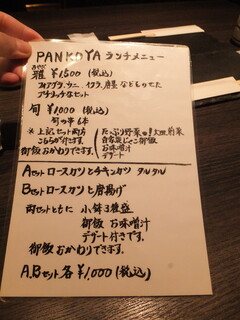 PANKOYA ランチメニュー
雅 ¥1500 (税込)
フォアグラ、ウニ、イクラ、唐墨などものせた
プチリッチなセット
旬 ¥1,000 (税込)
旬の串6本
※上記セット両方
こちらが付きます。
御飯おかわりできます。
たっぷり野菜の
自家製じゃこ御飯
お味噌汁
デザート
Aセット ロースカツとチキンカツ タルタル
Bセット ロースカツと唐揚げ
両セットともに 小鉢3種盛
御飯 お味噌汁
デザート付きです。
御飯おかわりできます。
A,Bセット各 ¥1,000 (税込)